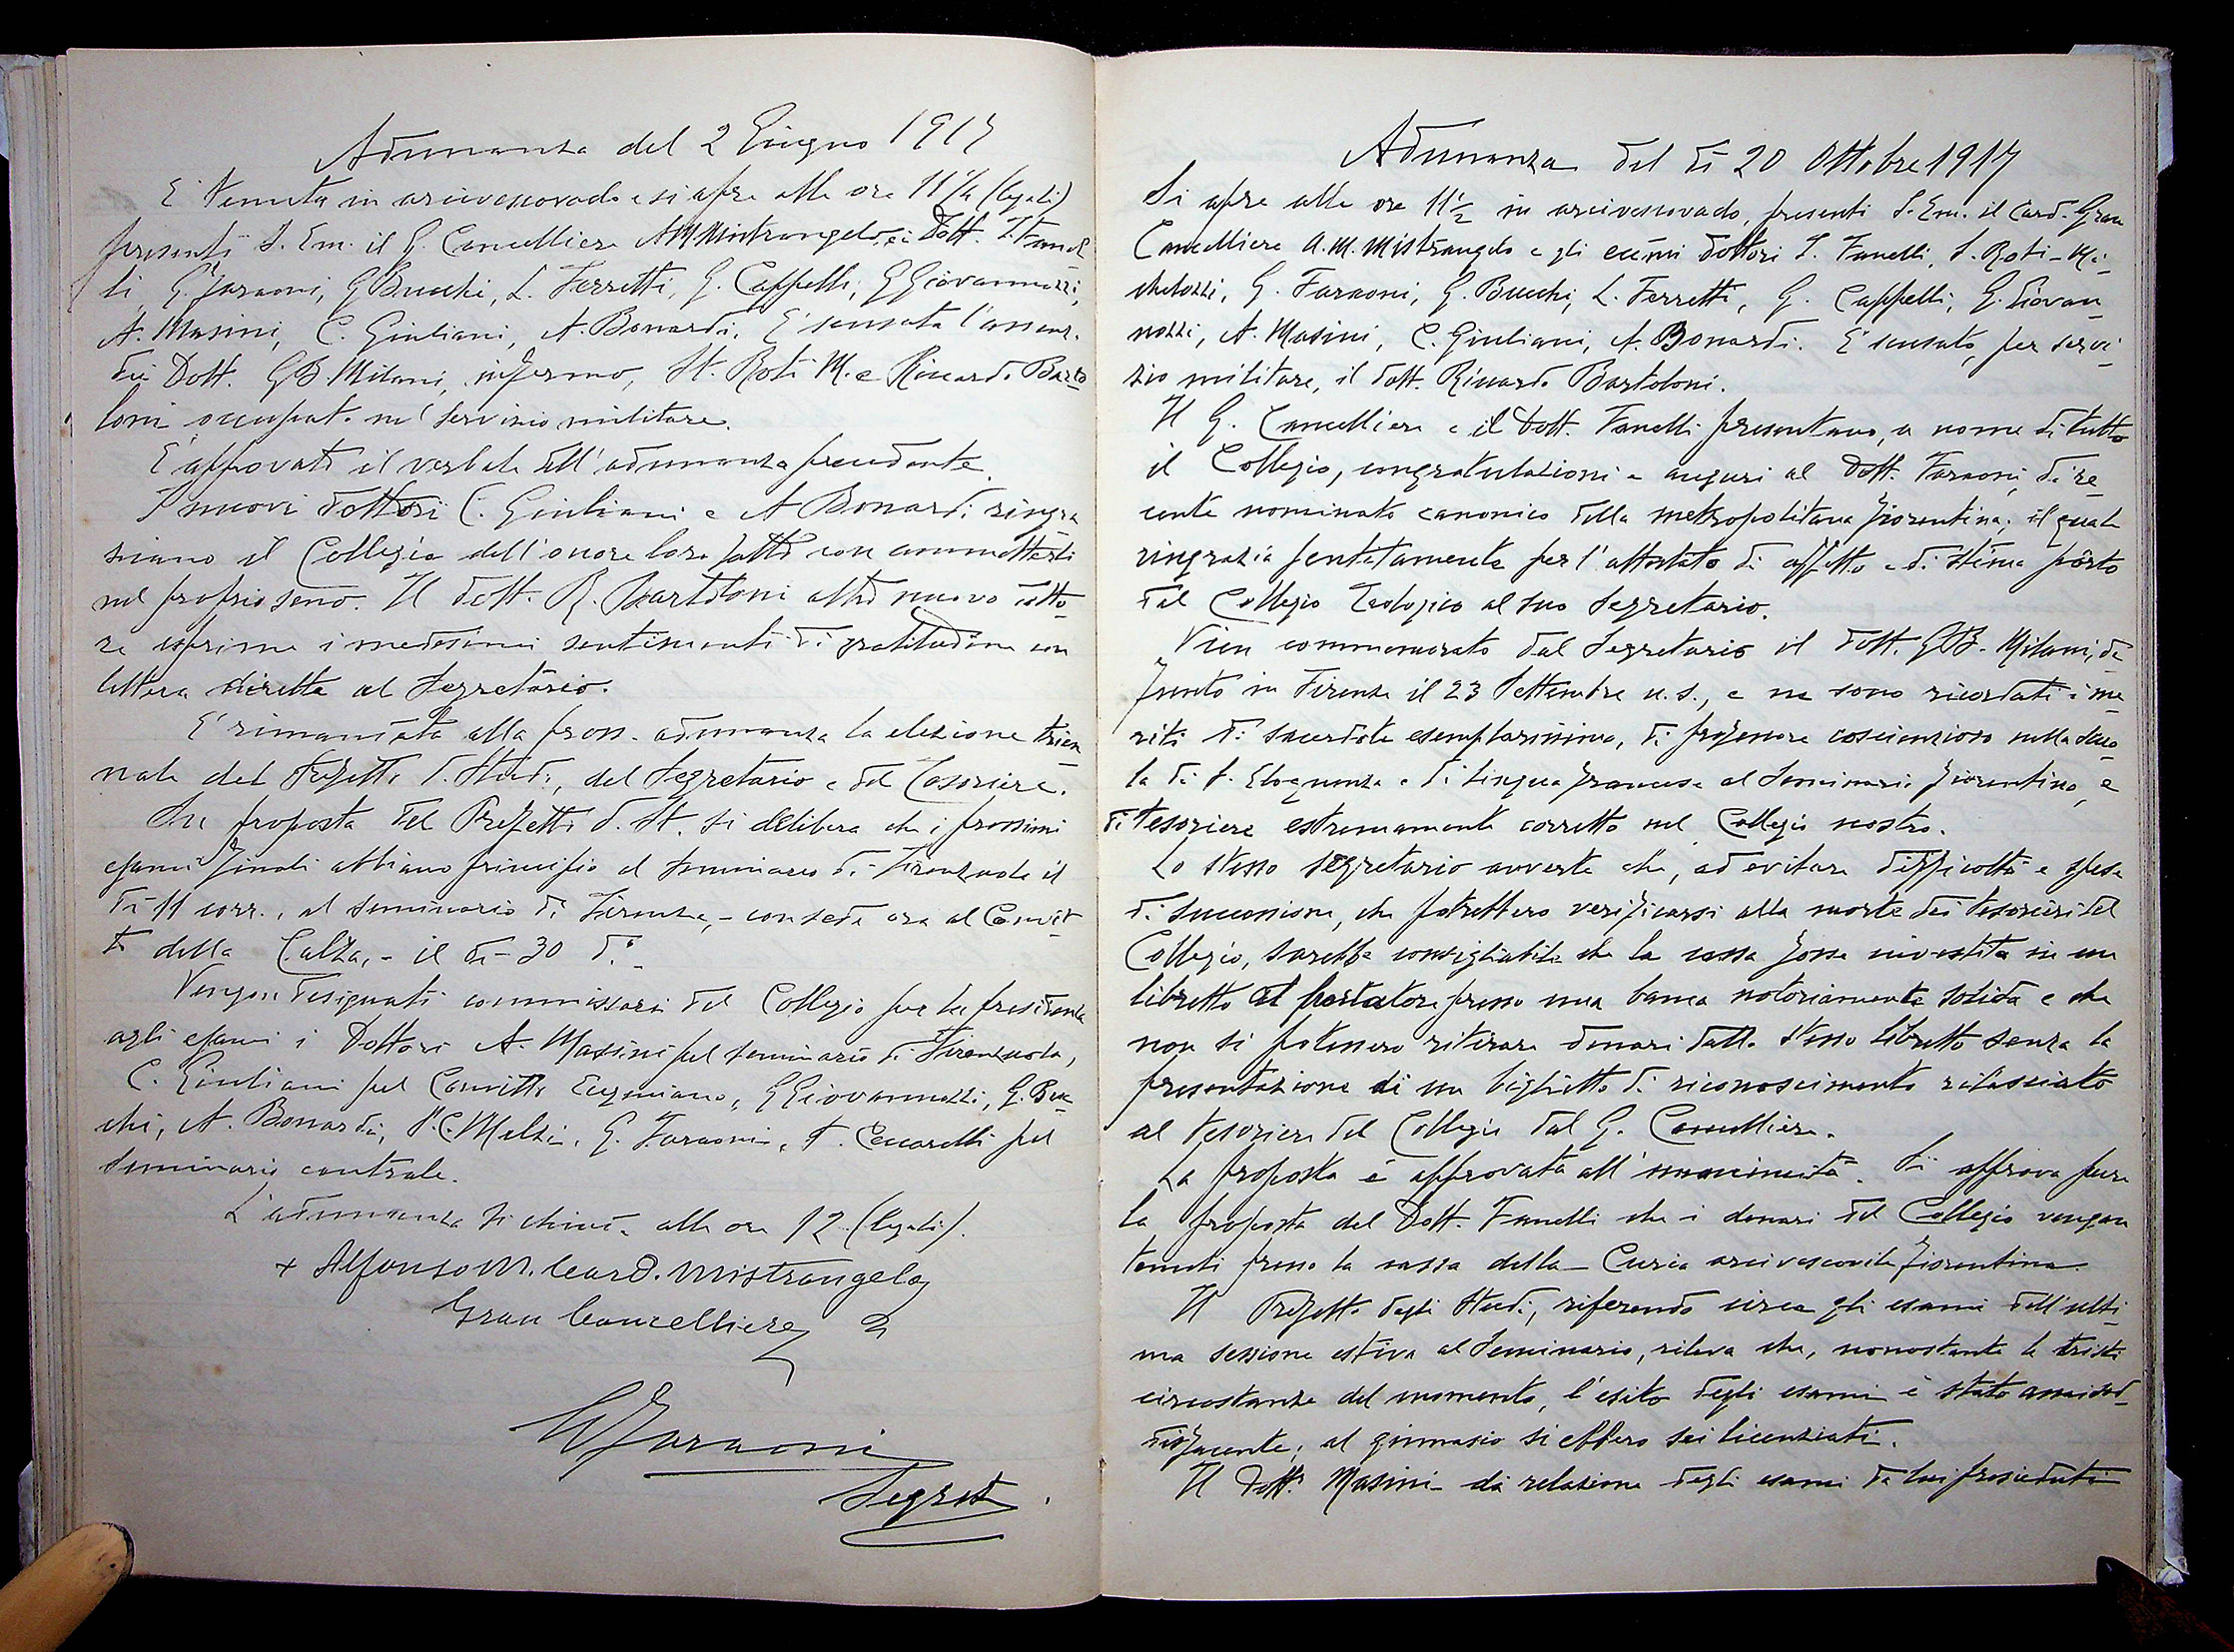 Adunanza del 2 Giugno 1917
È tenuta in arcivescovado e si apre alle ore 11 1/4 (legali)
presenti S. Em. il G. Cancelliere A M Mistrangelo, e i Dott. S. Fanel
li, G. Faraoni, G Bucchi, L. Ferretti, G. Cappelli, G Giovannozzi,
A. Masini, C. Giuliani, A. Bonardi. È scusata l'assenz.
dei Dott. GB Milani, infermo, St. Roti M. e Riccardo Barto
loni occupat. nel servizio militare.
È approvato il verbale dell'adunanza precedente.
I nuovi dottori C. Giuliani e A Bonardi ringra
ziano il Collegio dell'onore loro fatto con ammetterli
nel proprio seno. Il dott. R. Bartoloni altro nuovo dotto
re esprime i medesimi sentimenti di gratitudine con
lettera diretta al Segretario.
È rimandata alla pross. adunanza la elezione trien
nale del Prefetto d. Studi, del Segretario e del Tesoriere.
Su proposta del Prefetto d. St. si delibera che i prossimi
esami finali abbiano principio al seminario di Firenzuola il
dì 11 corr., al seminario di Firenze, - con sede ora al Convit
to della Calza, - il dì 30 d.º
Vengon designati commissari del Collegio per la presidenza
agli esami i Dottori A. Masini pel seminario di Firenzuola,
C. Giuliani pel Convitto Eugeniano, G Giovannozzi, G. Buc
chi, A. Bonardi, P. C. Melzi, G. Faraoni, F. Ceccarelli pel
seminario centrale.
L'adunanza si chiude alle ore 12 (legali).
+ Alfonso M. Card. Mistrangelo
Gran Cancelliere
G Faraoni
Segret.
Adunanza del dì 20 Ottobre 1917
Si apre alle ore 11 1/2 in arcivescovado, presenti S. Em. il Card. Gran
Cancelliere A. M. Mistrangelo e gli ecc̃mi dottori S. Fanelli, S. Roti-Mi-
chelozzi, G. Faraoni, G. Bucchi, L. Ferretti, G. Cappelli, G. Giovan
nozzi, A. Masini, C. Giuliani, A. Bonardi. È scusato, per servi
zio militare, il dott. Riccardo Bartoloni.
Il G. Cancelliere e il Dott. Fanelli presentano, a nome di tutto
il Collegio, congratulazioni e auguri al Dott. Faraoni, di re
cente nominato canonico della metropolitana fiorentina; il quale
ringrazia sentitamente per l'attestato di affetto e di stima pòrto
dal Collegio Teologico al suo Segretario.
Vien commemorato dal Segretario il dott. GB. Milani, de
funto in Firenze il 23 Settembre u. s., e ne sono ricordati i me
riti di sacerdote esemplarissimo, di professore coscienzioso nella scuo
la di S. Eloquenza e di lingua francese al Seminario fiorentino, e
di tesoriere estremamente corretto nel Collegio nostro.
Lo stesso segretario avverte che, ad evitare difficoltà e spese
di successione, che potrebbero verificarsi alla morte dei tesorieri del
Collegio, sarebbe consigliabile che la cassa fosse investita in un
libretto al portatore presso una banca notoriamente solida e che
non si potessero ritirare denari dallo stesso libretto senza la
presentazione di un biglietto di riconoscimento rilasciato
al tesoriere del Collegio dal G. Cancelliere.
La proposta è approvata all'unanimità. Si approva pure
la proposta del Dott. Fanelli che i denari del Collegio vengan
tenuti presso la cassa della Curia arcivescovile fiorentina.
Il Prefetto degli Studi, riferendo circa gli esami dell'ulti
ma sessione estiva al Seminario, rileva che, nonostante le tristi
circostanze del momento, l'esito degli esami è stato assai sod_
disfacente; al ginnasio si ebbero sei licenziati.
Il Dott. Masini dà relazione degli esami da lui presieduti